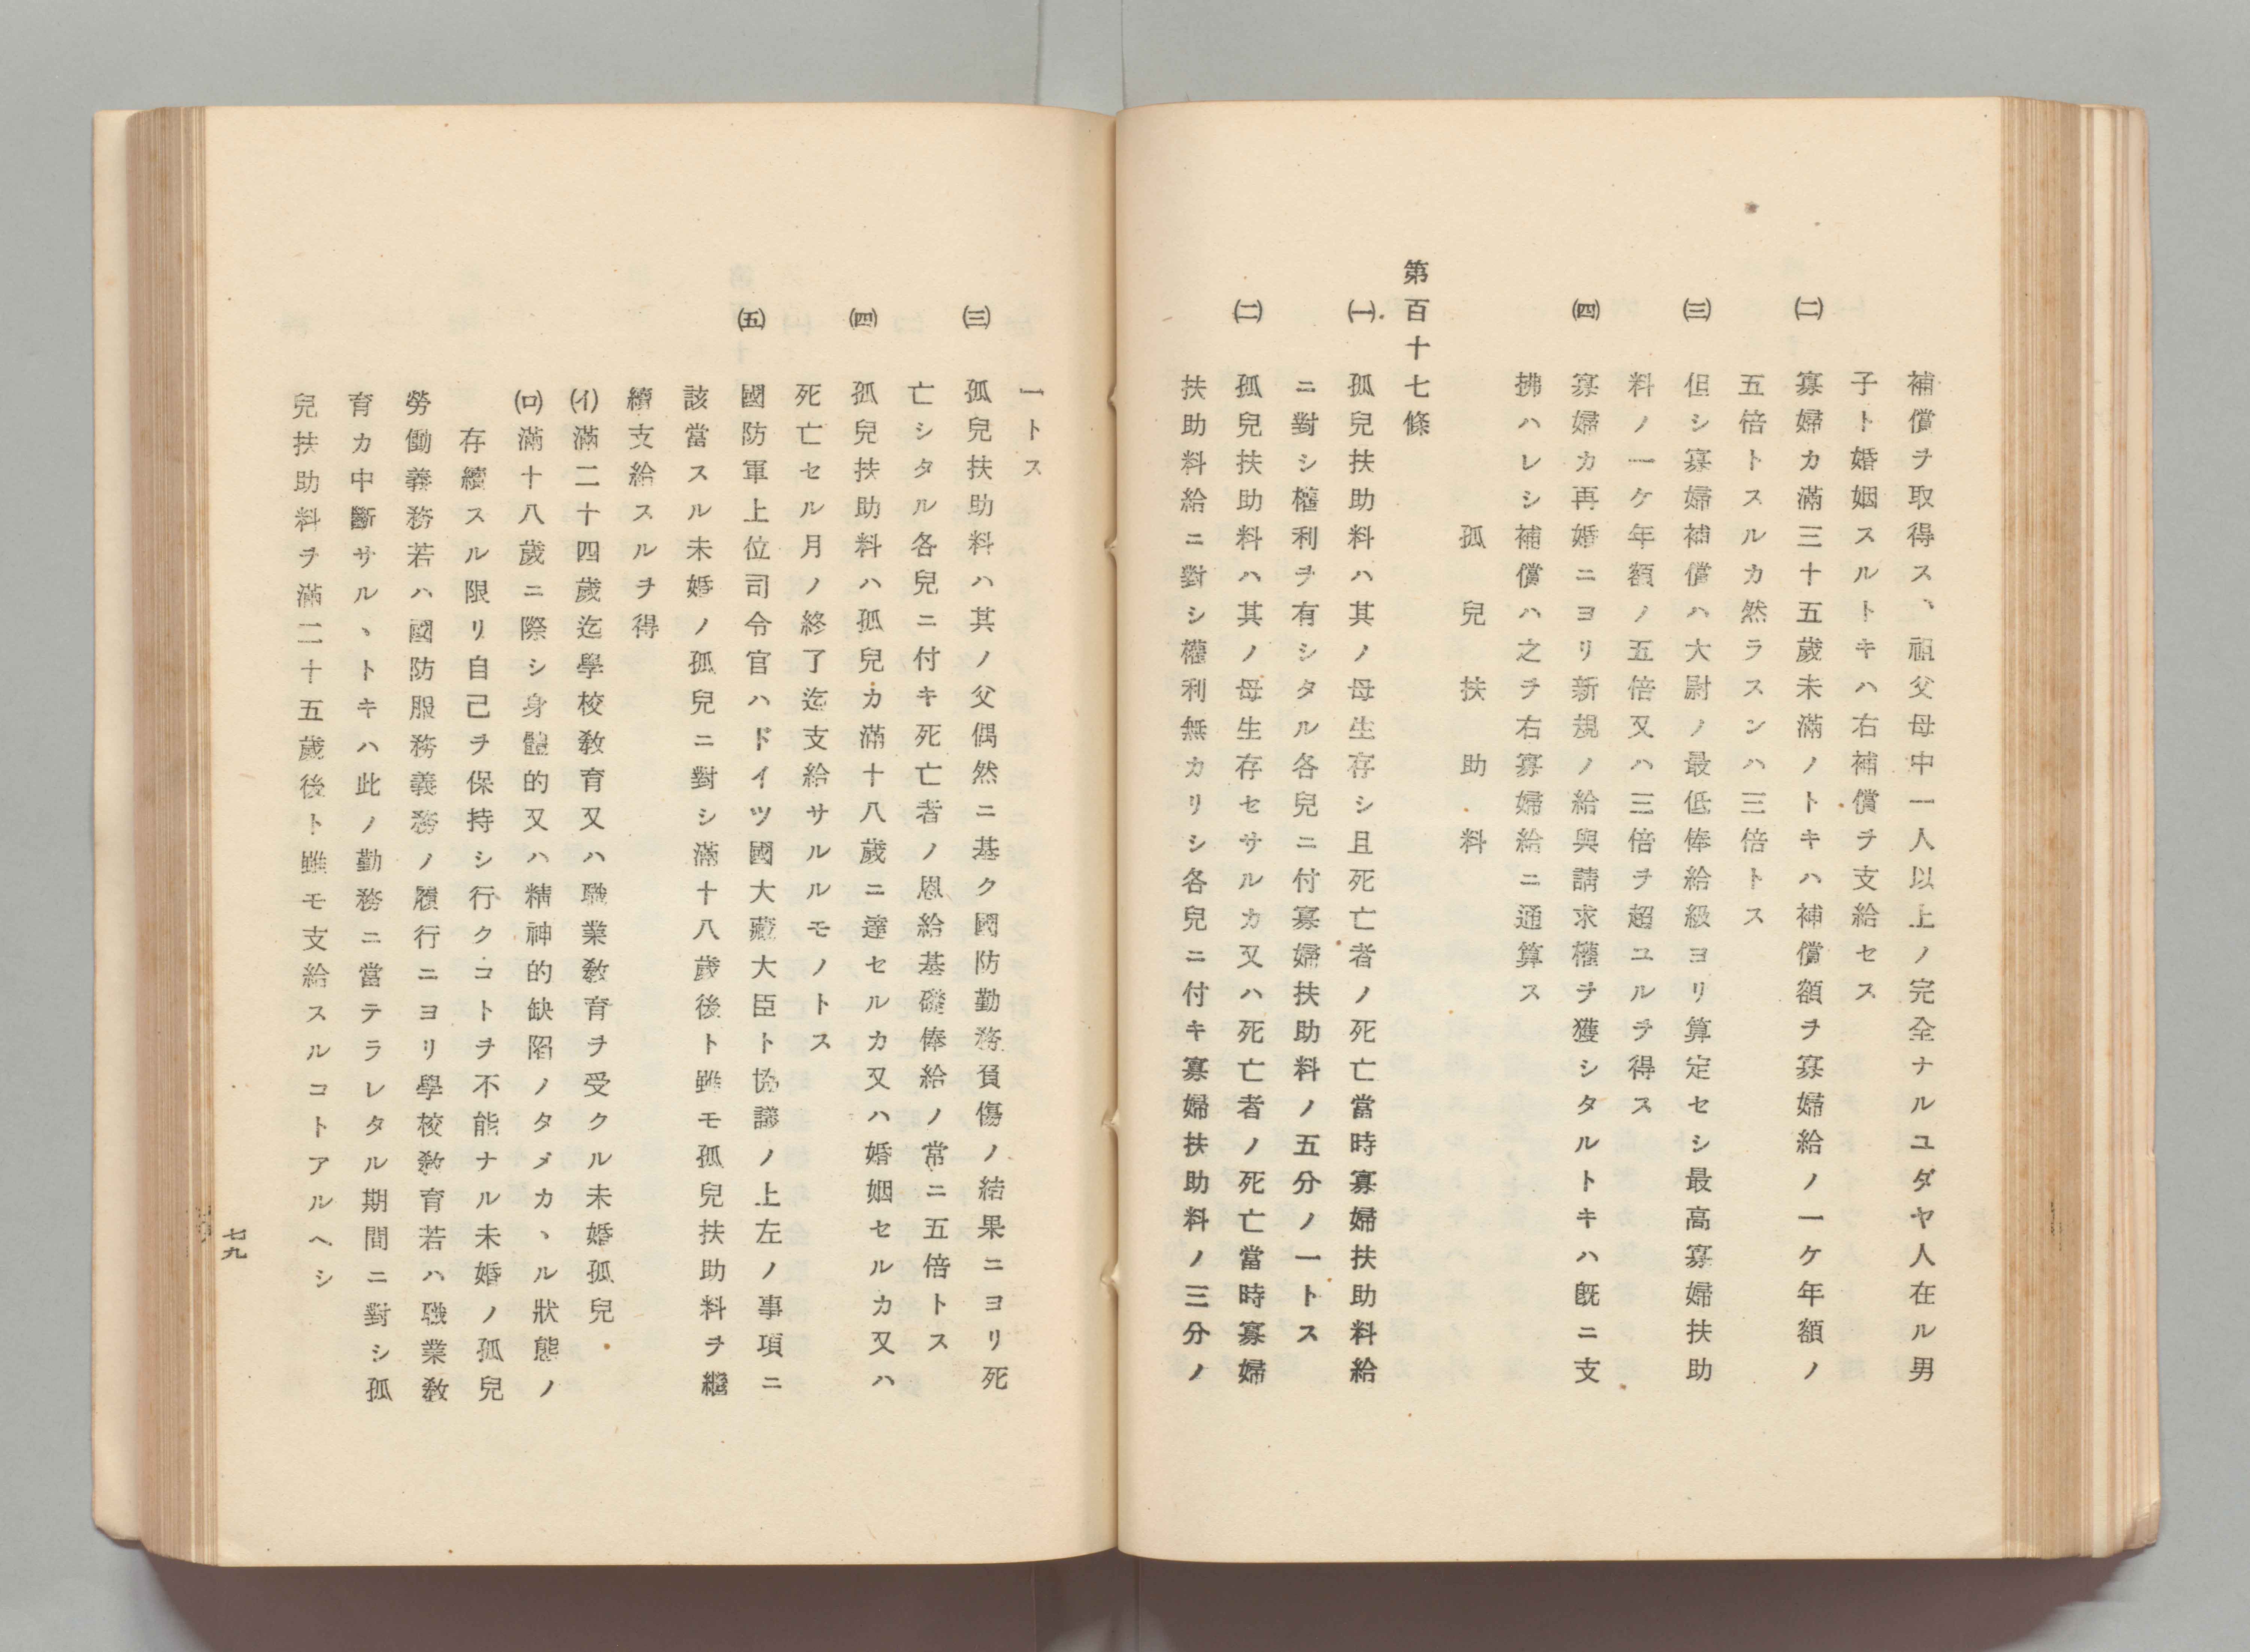 補償ヲ取得ス、祖父母中一人以上ノ完全ナルユダヤ人在ル男
子ト婚姻スルトキハ右補償ヲ支給セス
㈡　寡婦カ滿三十五歲未滿ノトキハ補償額ヲ寡婦給ノ一ケ年額ノ
五倍トスルカ然ラスンハ三倍トス
㈢　但シ寡婦補償ハ大尉ノ最低俸給級ヨリ算定セシ最高寡婦扶助
料ノ一ケ年額ノ五倍又ハ三倍ヲ超ユルヲ得ス
㈣　寡婦カ再婚ニヨリ新規ノ給與請求權ヲ獲シタルトキハ旣ニ支
拂ハレシ補償ハ之ヲ右寡婦給ニ通算ス
孤兒扶助料
第百十七條
㈠　孤兒扶助料ハ其ノ母生存シ且死亡者ノ死亡當時寡婦扶助料給
ニ對シ權利ヲ有シタル各兒ニ付寡婦扶助料ノ五分ノ一トス
㈡　孤兒扶助料ハ其ノ母生存セサルカ又ハ死亡者ノ死亡當時寡婦
扶助料給ニ對シ權利無カリシ各兒ニ付キ寡婦扶助料ノ三分ノ
一トス
㈢　孤兒扶助料ハ其ノ父偶然ニ基ク國防勤務負傷ノ結果ニヨリ死
亡シタル各兒ニ付キ死亡者ノ恩給基礎俸給ノ常ニ五倍トス
㈣　孤兒扶助料ハ孤兒カ滿十八歲ニ達セルカ又ハ婚姻セルカ又ハ
死亡セル月ノ終了迄支給サルルモノトス
㈤　國防軍上位司令官ハドイツ國大藏大臣ト協議ノ上左ノ事項ニ
該當スル未婚ノ孤兒ニ對シ滿十八歲後ト雖モ孤兒扶助料ヲ繼
續支給スルヲ得
(イ)滿二十四歲迄學校敎育又ハ職業敎育ヲ受クル未婚孤兒
(ロ)滿十八歲ニ際シ身體的又ハ精神的缺陷ノタメカヽル狀態ノ
存續スル限リ自己ヲ保持シ行クコトヲ不能ナル未婚ノ孤兒
勞働義務若ハ國防服務義務ノ履行ニヨリ學校敎育若ハ職業敎
育カ中斷サルヽトキハ此ノ勤務ニ當テラレタル期間ニ對シ孤
兒扶助料ヲ滿二十五歲後ト雖モ支給スルコトアルヘシ
七九